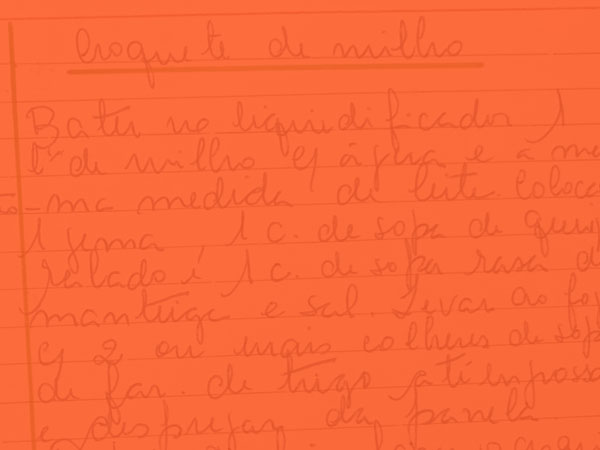 Croquete de milho
Bater no liquidificador 1
lta de milho c/ água e a me
-ma medida de leite. Coloca
1 gema, 1 c. de sopa de quei
ralado e 1 c. de sopa rasa d
manteiga e sal. Levar ao fo
c/ 2 ou mais colheres de sop
de far. de trigo até engross
e despejar da panela